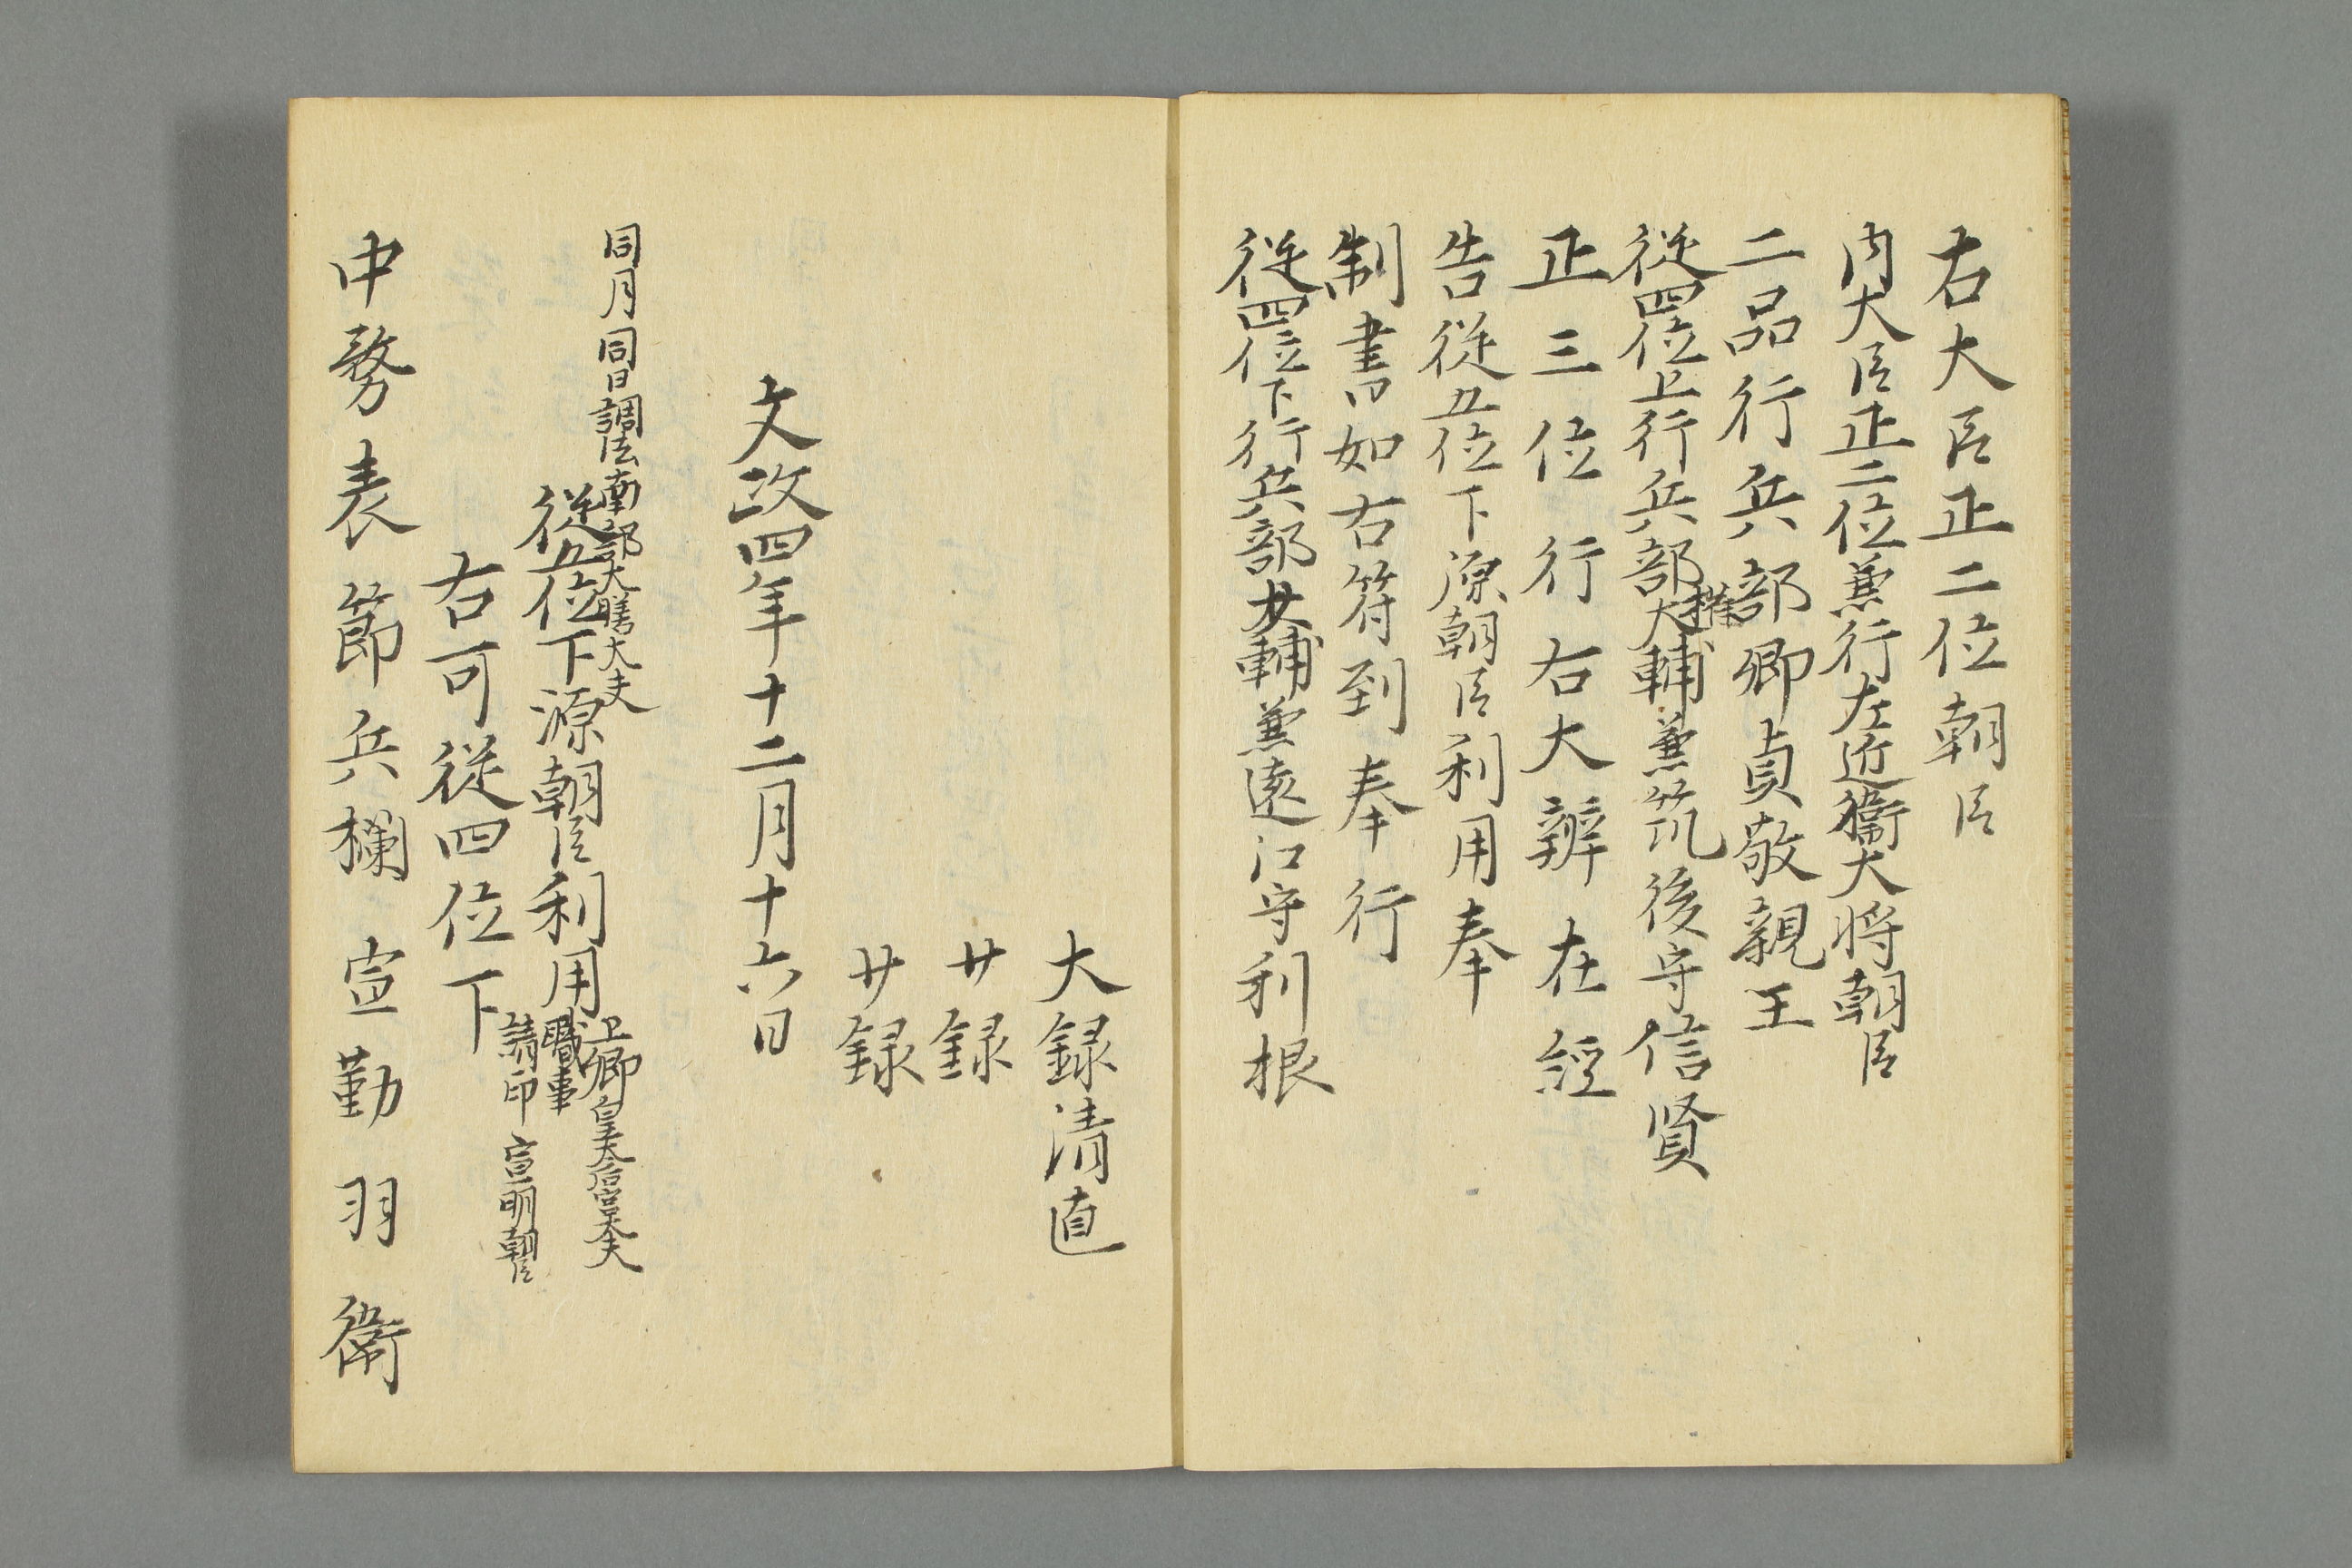 右大臣正二位朝臣
内大臣正二位兼行左近衛大将朝臣
二品行兵部卿貞敬親王
従四位上行兵部権大輔兼筑後守信賢
正三位行右大辨在經
告従五位下源朝臣利用奉
制書如右符到奉行
従四位下行兵部少輔兼遠江守利根
大録清直
少録
少録
文政四年十二月十六日
同月同日調伝南部大膳大夫
従五位下源朝臣利用
上卿皇太后宮大夫
職事
請印宣明朝臣
右可従四位下
中務表節兵欄宣勤羽衛